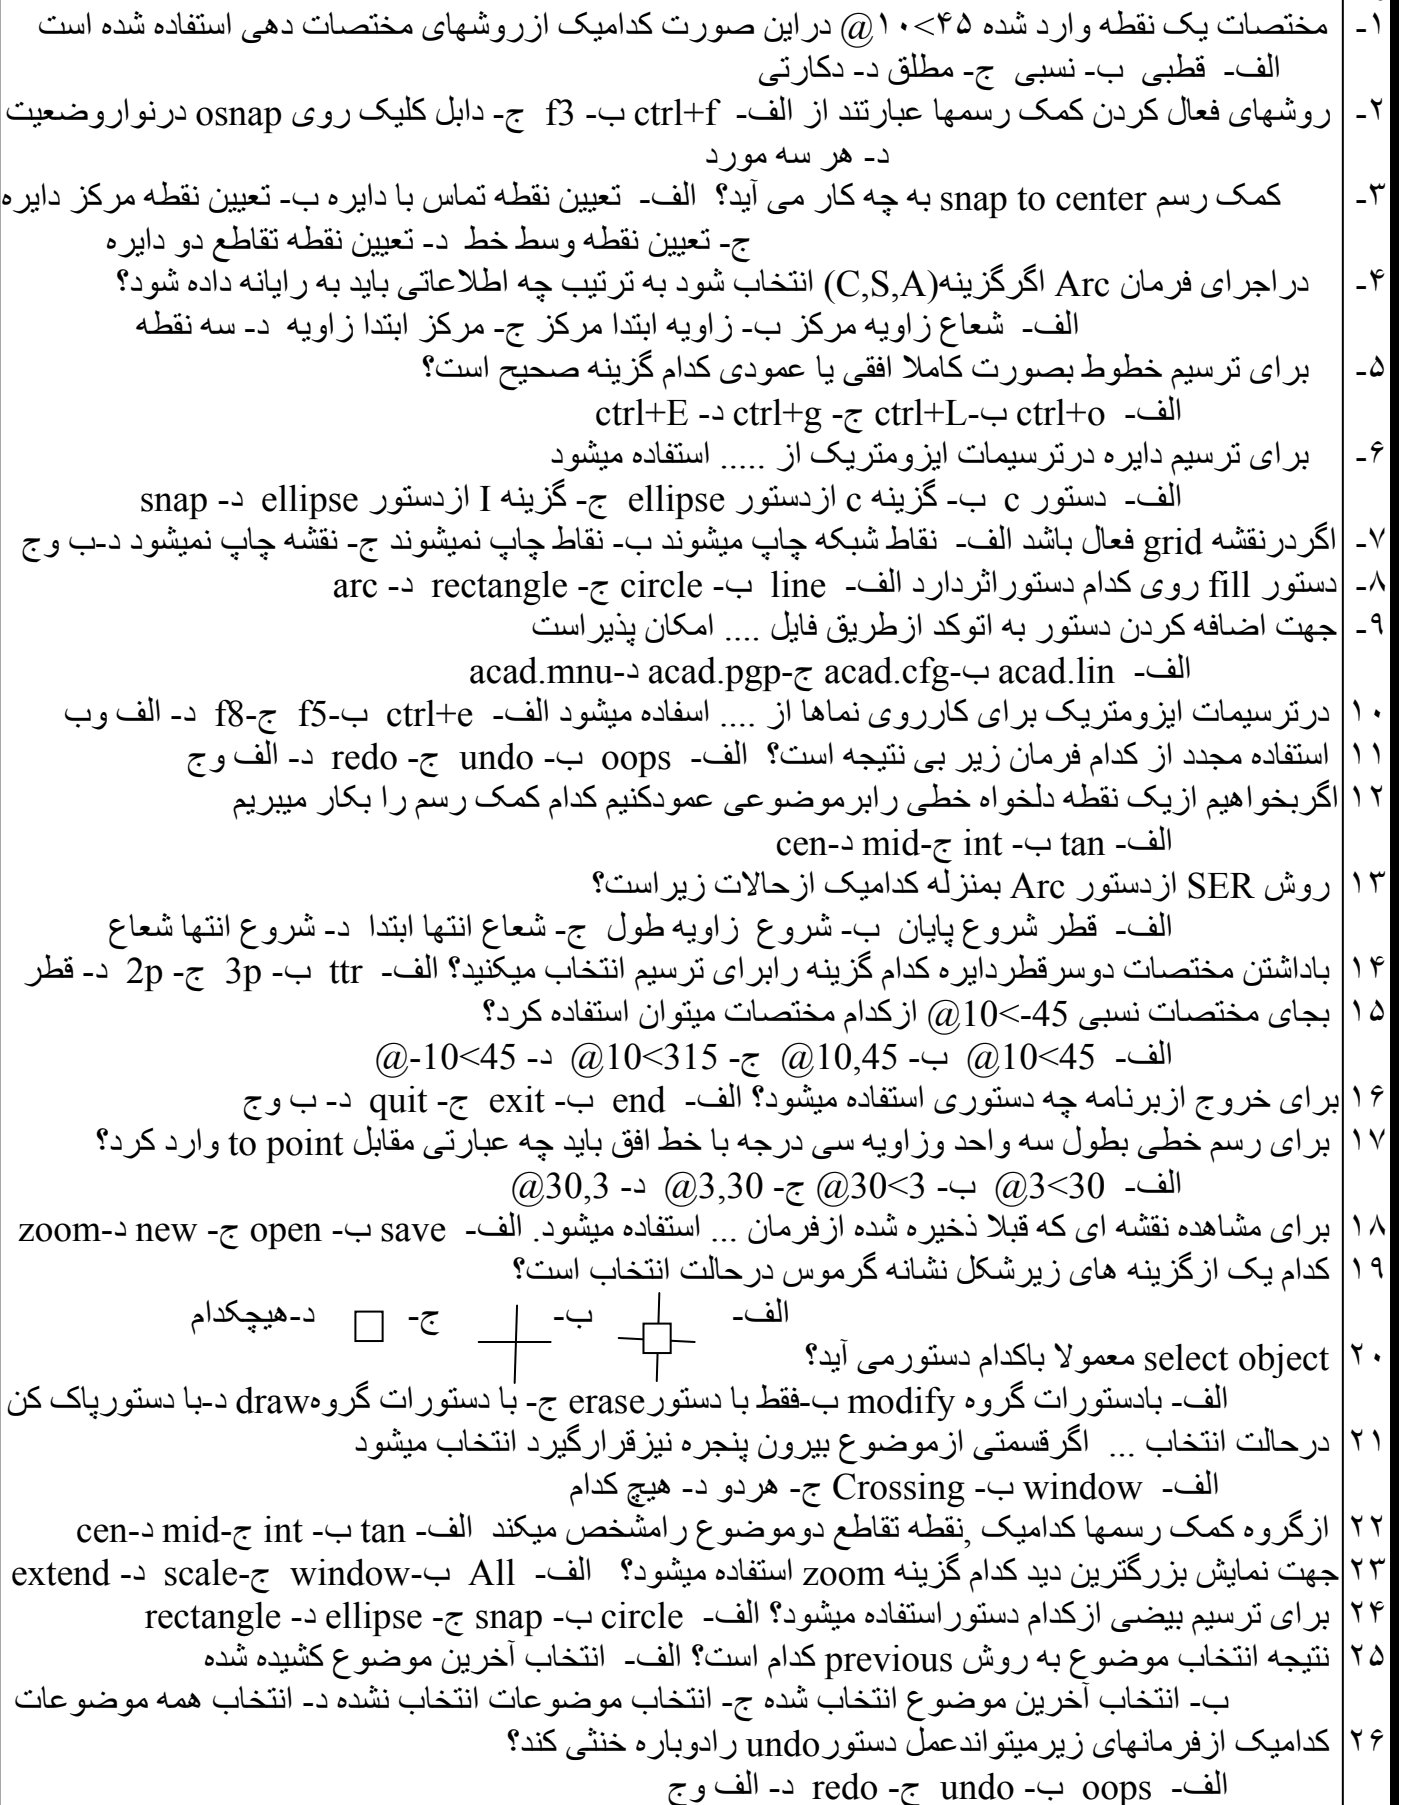 ۱- مختصات یک نقطه وارد شده ۴۵>۱۰@ دراین صورت کدامیک ازروشهای مختصات دهی استفاده شده است
الف- قطبی ب- نسبی ج- مطلق د- دکارتی
۲- روشهای فعال کردن کمک رسمها عبارتند از الف- ctrl+f ب- f3 ج- دابل کلیک روی osnap درنواروضعیت
د- هر سه مورد
۳- کمک رسم snap to center به چه کار می آید؟ الف- تعیین نقطه تماس با دایره ب- تعیین نقطه مرکز دایره
ج- تعیین نقطه وسط خط د- تعیین نقطه تقاطع دو دایره
۴- دراجرای فرمان Arc اگرگزینه(C,S,A) انتخاب شود به ترتیب چه اطلاعاتی باید به رایانه داده شود؟
الف- شعاع زاویه مرکز ب- زاویه ابتدا مرکز ج- مرکز ابتدا زاویه د- سه نقطه
۵- برای ترسیم خطوط بصورت کاملا افقی یا عمودی کدام گزینه صحیح است؟
الف- ctrl+o ب-ctrl+L ج- ctrl+g د- ctrl+E
۶- برای ترسیم دایره درترسیمات ایزومتریک از ..... استفاده میشود
الف- دستور c ب- گزینه c ازدستور ellipse ج- گزینه I ازدستور ellipse د- snap
۷- اگردرنقشه grid فعال باشد الف- نقاط شبکه چاپ میشوند ب- نقاط چاپ نمیشوند ج- نقشه چاپ نمیشود د-ب وج
۸- دستور fill روی کدام دستوراثردارد الف- line ب- circle ج- rectangle د- arc
۹- جهت اضافه کردن دستور به اتوکد ازطریق فایل .... امکان پذیراست
الف- acad.lin ب-acad.cfg ج-acad.pgp د-acad.mnu
۱۰ درترسیمات ایزومتریک برای کارروی نماها از .... اسفاده میشود الف- ctrl+e ب-f5 ج-f8 د- الف وب
۱۱ استفاده مجدد از کدام فرمان زیر بی نتیجه است؟ الف- oops ب- undo ج- redo د- الف وج
۱۲ اگربخواهیم ازیک نقطه دلخواه خطی رابرموضوعی عمودکنیم کدام کمک رسم را بکار میبریم
الف- tan ب- int ج-mid د-cen
۱۳ روش SER ازدستور Arc بمنزله کدامیک ازحالات زیراست؟
الف- قطر شروع پایان ب- شروع زاویه طول ج- شعاع انتها ابتدا د- شروع انتها شعاع
۱۴ باداشتن مختصات دوسرقطردایره کدام گزینه رابرای ترسیم انتخاب میکنید؟ الف- ttr ب- 3p ج- 2p د- قطر
۱۵ بجای مختصات نسبی @10<-45 ازکدام مختصات میتوان استفاده کرد؟
الف- @10<45 ب- @10,45 ج- @10<315 د- @-10<45
۱۶ برای خروج ازبرنامه چه دستوری استفاده میشود؟ الف- end ب- exit ج- quit د- ب وج
۱۷ برای رسم خطی بطول سه واحد وزاویه سی درجه با خط افق باید چه عبارتی مقابل to point وارد کرد؟
الف- @3<30 ب- @30<3 ج- @3,30 د- @30,3
۱۸ برای مشاهده نقشه ای که قبلا ذخیره شده ازفرمان ... استفاده میشود. الف- save ب- open ج- new د-zoom
۱۹ کدام یک ازگزینه های زیرشکل نشانه گرموس درحالت انتخاب است؟
الف- ب- ج- د-هیچکدام
۲۰ select object معمولا باکدام دستورمی آید؟
الف- بادستورات گروه modify ب-فقط با دستورerase ج- با دستورات گروهdraw د-با دستورپاک کن
۲۱ درحالت انتخاب ... اگرقسمتی ازموضوع بیرون پنجره نیزقرارگیرد انتخاب میشود
الف- window ب- Crossing ج- هردو د- هیچ کدام
۲۲ ازگروه کمک رسمها کدامیک ,نقطه تقاطع دوموضوع رامشخص میکند الف- tan ب- int ج-mid د-cen
۲۳ جهت نمایش بزرگترین دید کدام گزینه zoom استفاده میشود؟ الف- All ب-window ج-scale د- extend
۲۴ برای ترسیم بیضی ازکدام دستوراستفاده میشود؟ الف- circle ب- snap ج- ellipse د- rectangle
۲۵ نتیجه انتخاب موضوع به روش previous کدام است؟ الف- انتخاب آخرین موضوع کشیده شده
ب- انتخاب آخرین موضوع انتخاب شده ج- انتخاب موضوعات انتخاب نشده د- انتخاب همه موضوعات
۲۶ کدامیک ازفرمانهای زیرمیتواندعمل دستورundo رادوباره خنثی کند؟
الف- oops ب- undo ج- redo د- الف وج